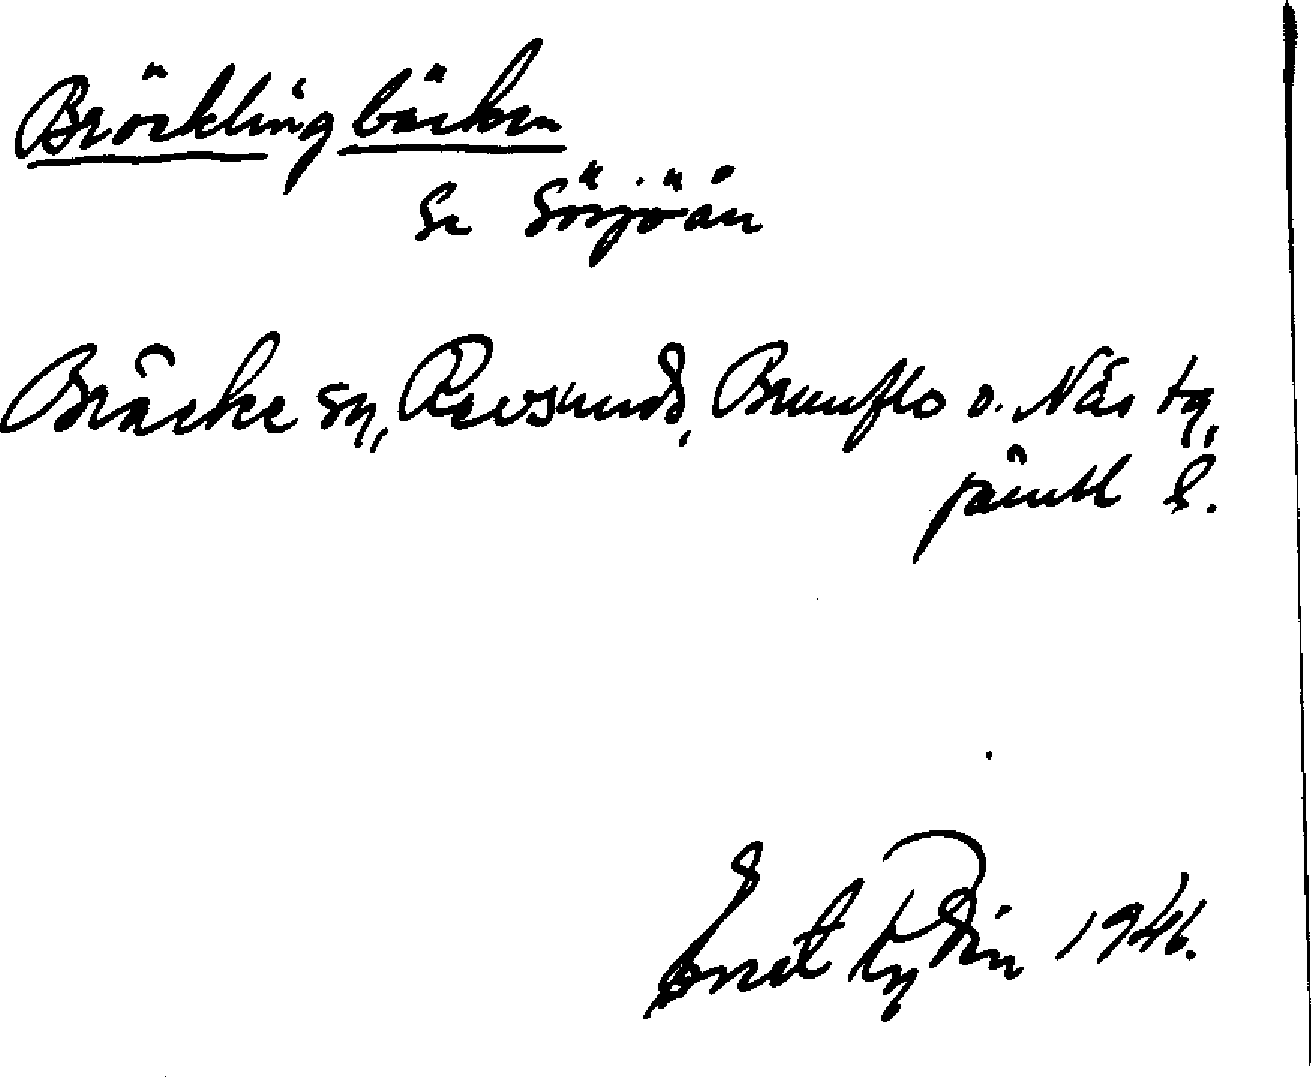 Bröcklingbäcken
Se Sörjöån
Bräcke sn, Revsund, Brunflo o. Näs tg,
Jämtl l.
Ernst Rydin 1946.